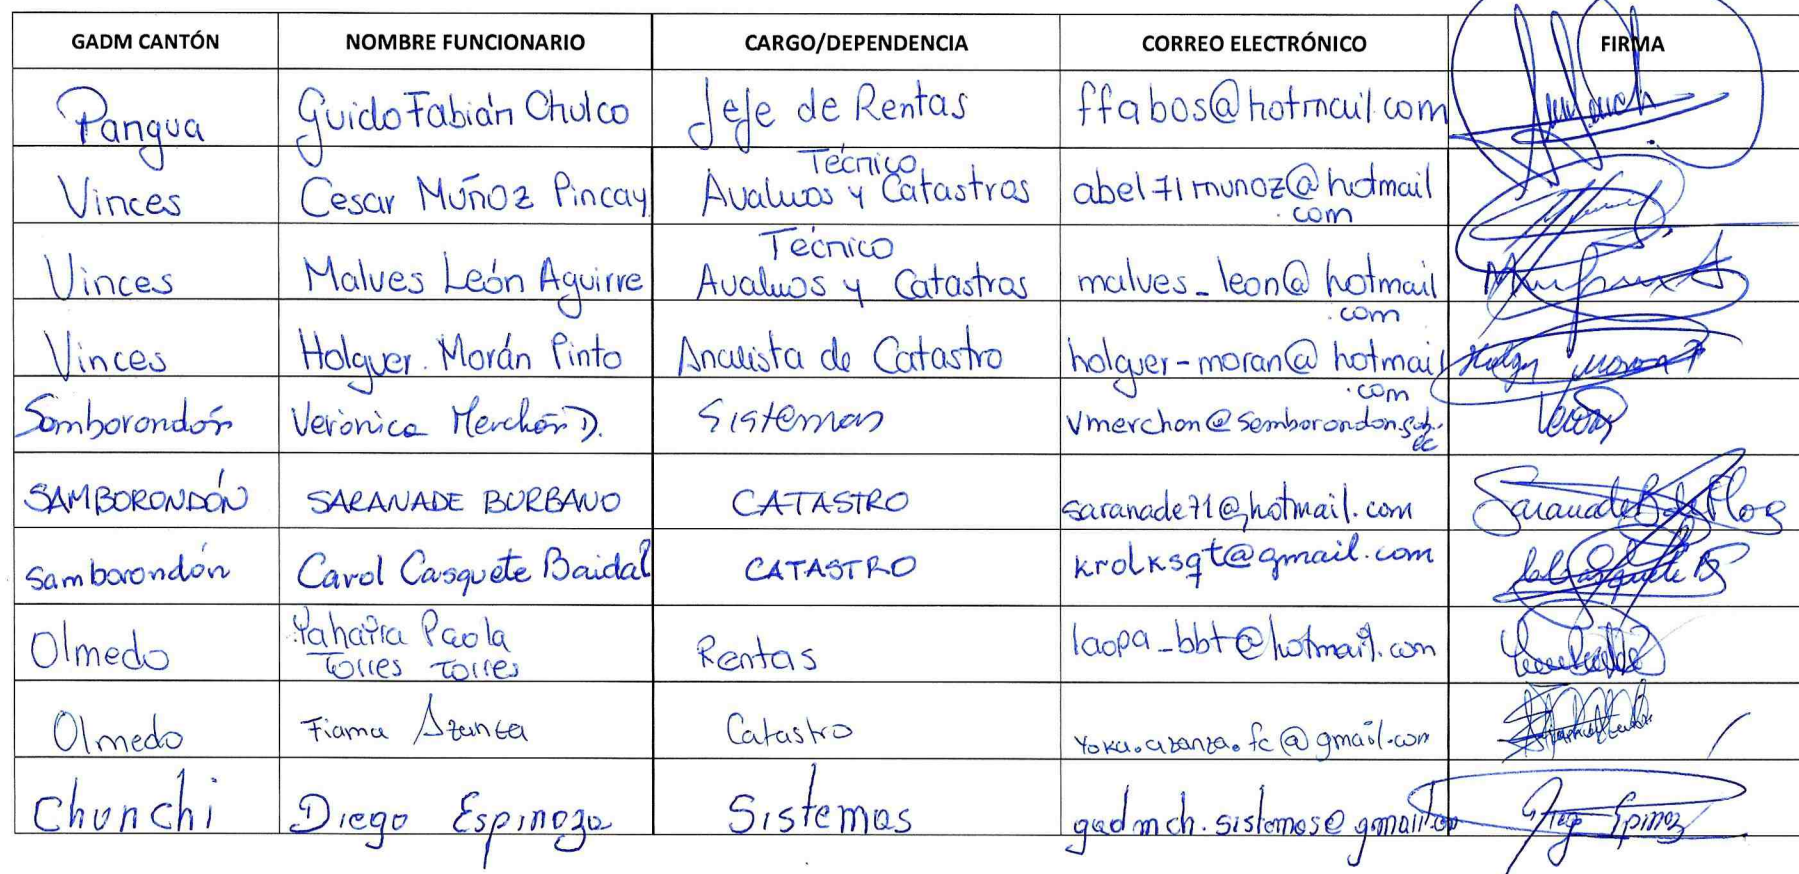 GADM CANTÓN NOMBRE FUNCIONARIO CARGO/DEPENDENCIA CORREO ELECTRÓNICO FIRMA
Pangua Guido Fabián Chulco Jefe de Rentas ffabos@hotmail.com
Técnico
Vinces Cesar Muñoz Pincay Avaluos y Catastros abel71munoz@hotmail
.com
Técnico
Vinces Malves León Aguirre Avaluos y Catastros malves_leon@hotmail
.com
Vinces Holguer. Morán Pinto Analista de Catastro holguer-moran@hotmail
.com
Samborondón Verónica Merchán D. Sistemas vmerchan@samborondon.gob.
ec
SAMBORONDÓN SARANADE BURBANO CATASTRO saranade71@hotmail.com
Samborondón Carol Casquete Baidal CATASTRO krolksqt@gmail.com
Yahaira Paola
Olmedo Torres Torres Rentas laopa_bbt@hotmail.com
Olmedo Fiama Azanza Catastro yoku.azanza.fc@gmail.com
Chunchi Diego Espinoza Sistemas gadmch.sistemas@gmail.com Diego Espinoz